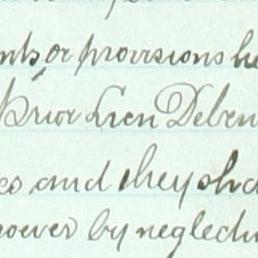 nts or provisions he
Prior Lien Deben
es and they sha
soever by neglectin